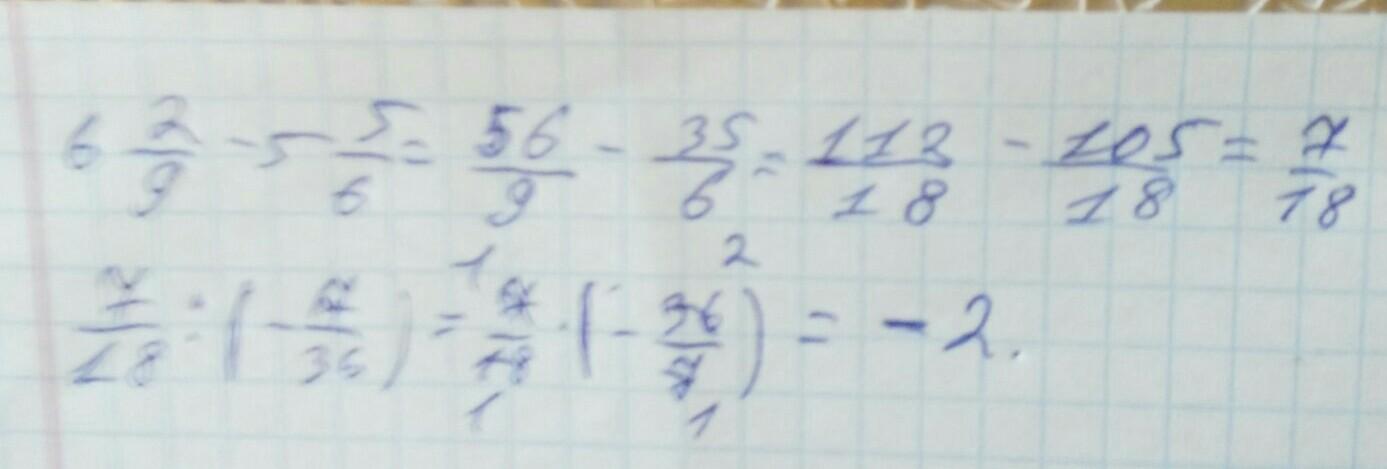 6 2/9 - 5 5/6 = 56/9 - 35/6 = 112/18 - 105/18 = 7/18
7/18 : (- 7/36) = 7/18 · (- 36/7) = - 2.